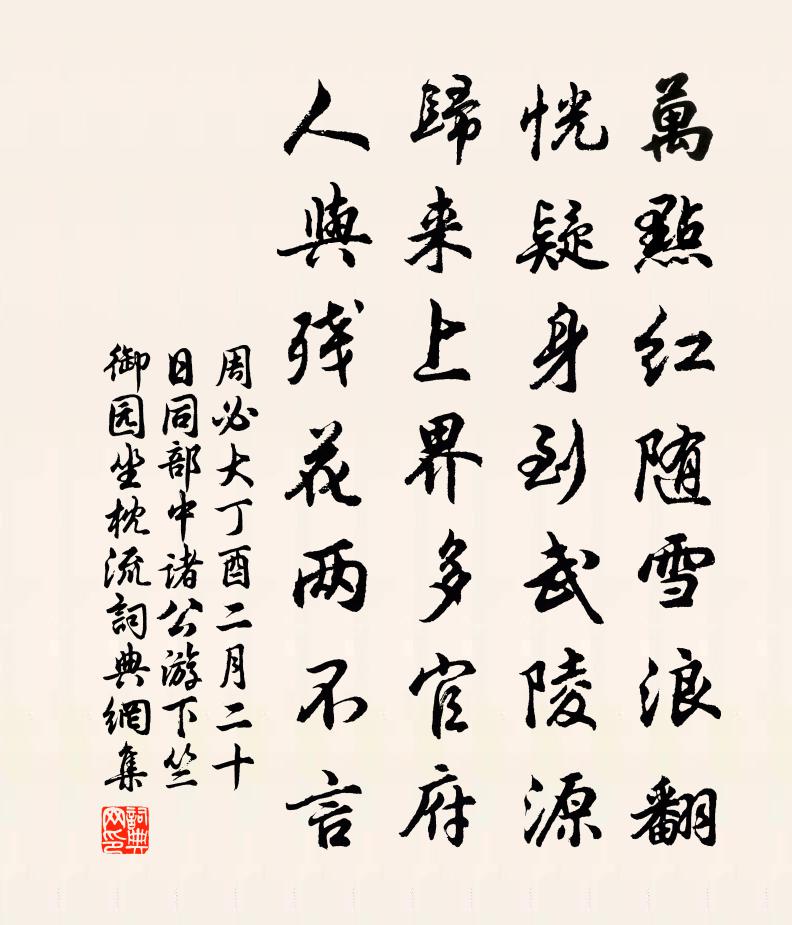 萬點紅随雪浪翻
恍疑身到武陵源
歸来上界多官府
人與残花两不言
周必大丁酉二月二十
日同部中诸公游下竺
御园坐枕流詞典網集
詞典
网印